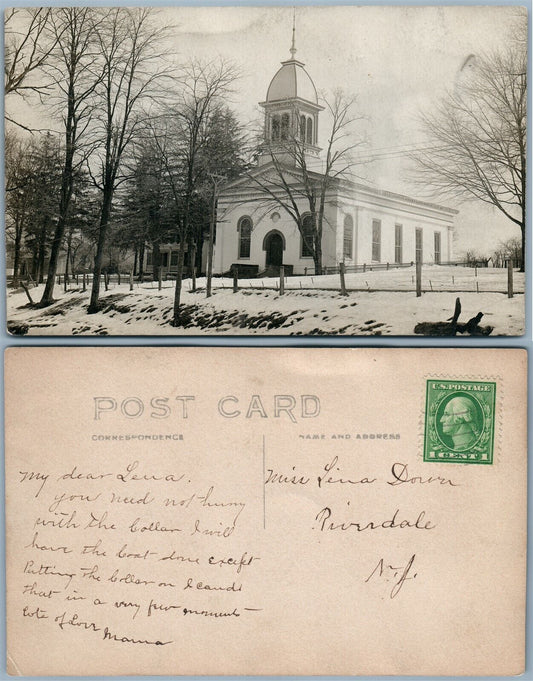 POST CARD
CORRESPONDENCE
NAME AND ADDRESS
U.S. POSTAGE
1 CENT 1
My dear Lena.
you need not hurry
with the Collar I will
have the Coat done except
Putting the Collar on I can do
that in a very few moments
Lots of Love Mama
Miss Lina Dower
Riverdale
N.J.